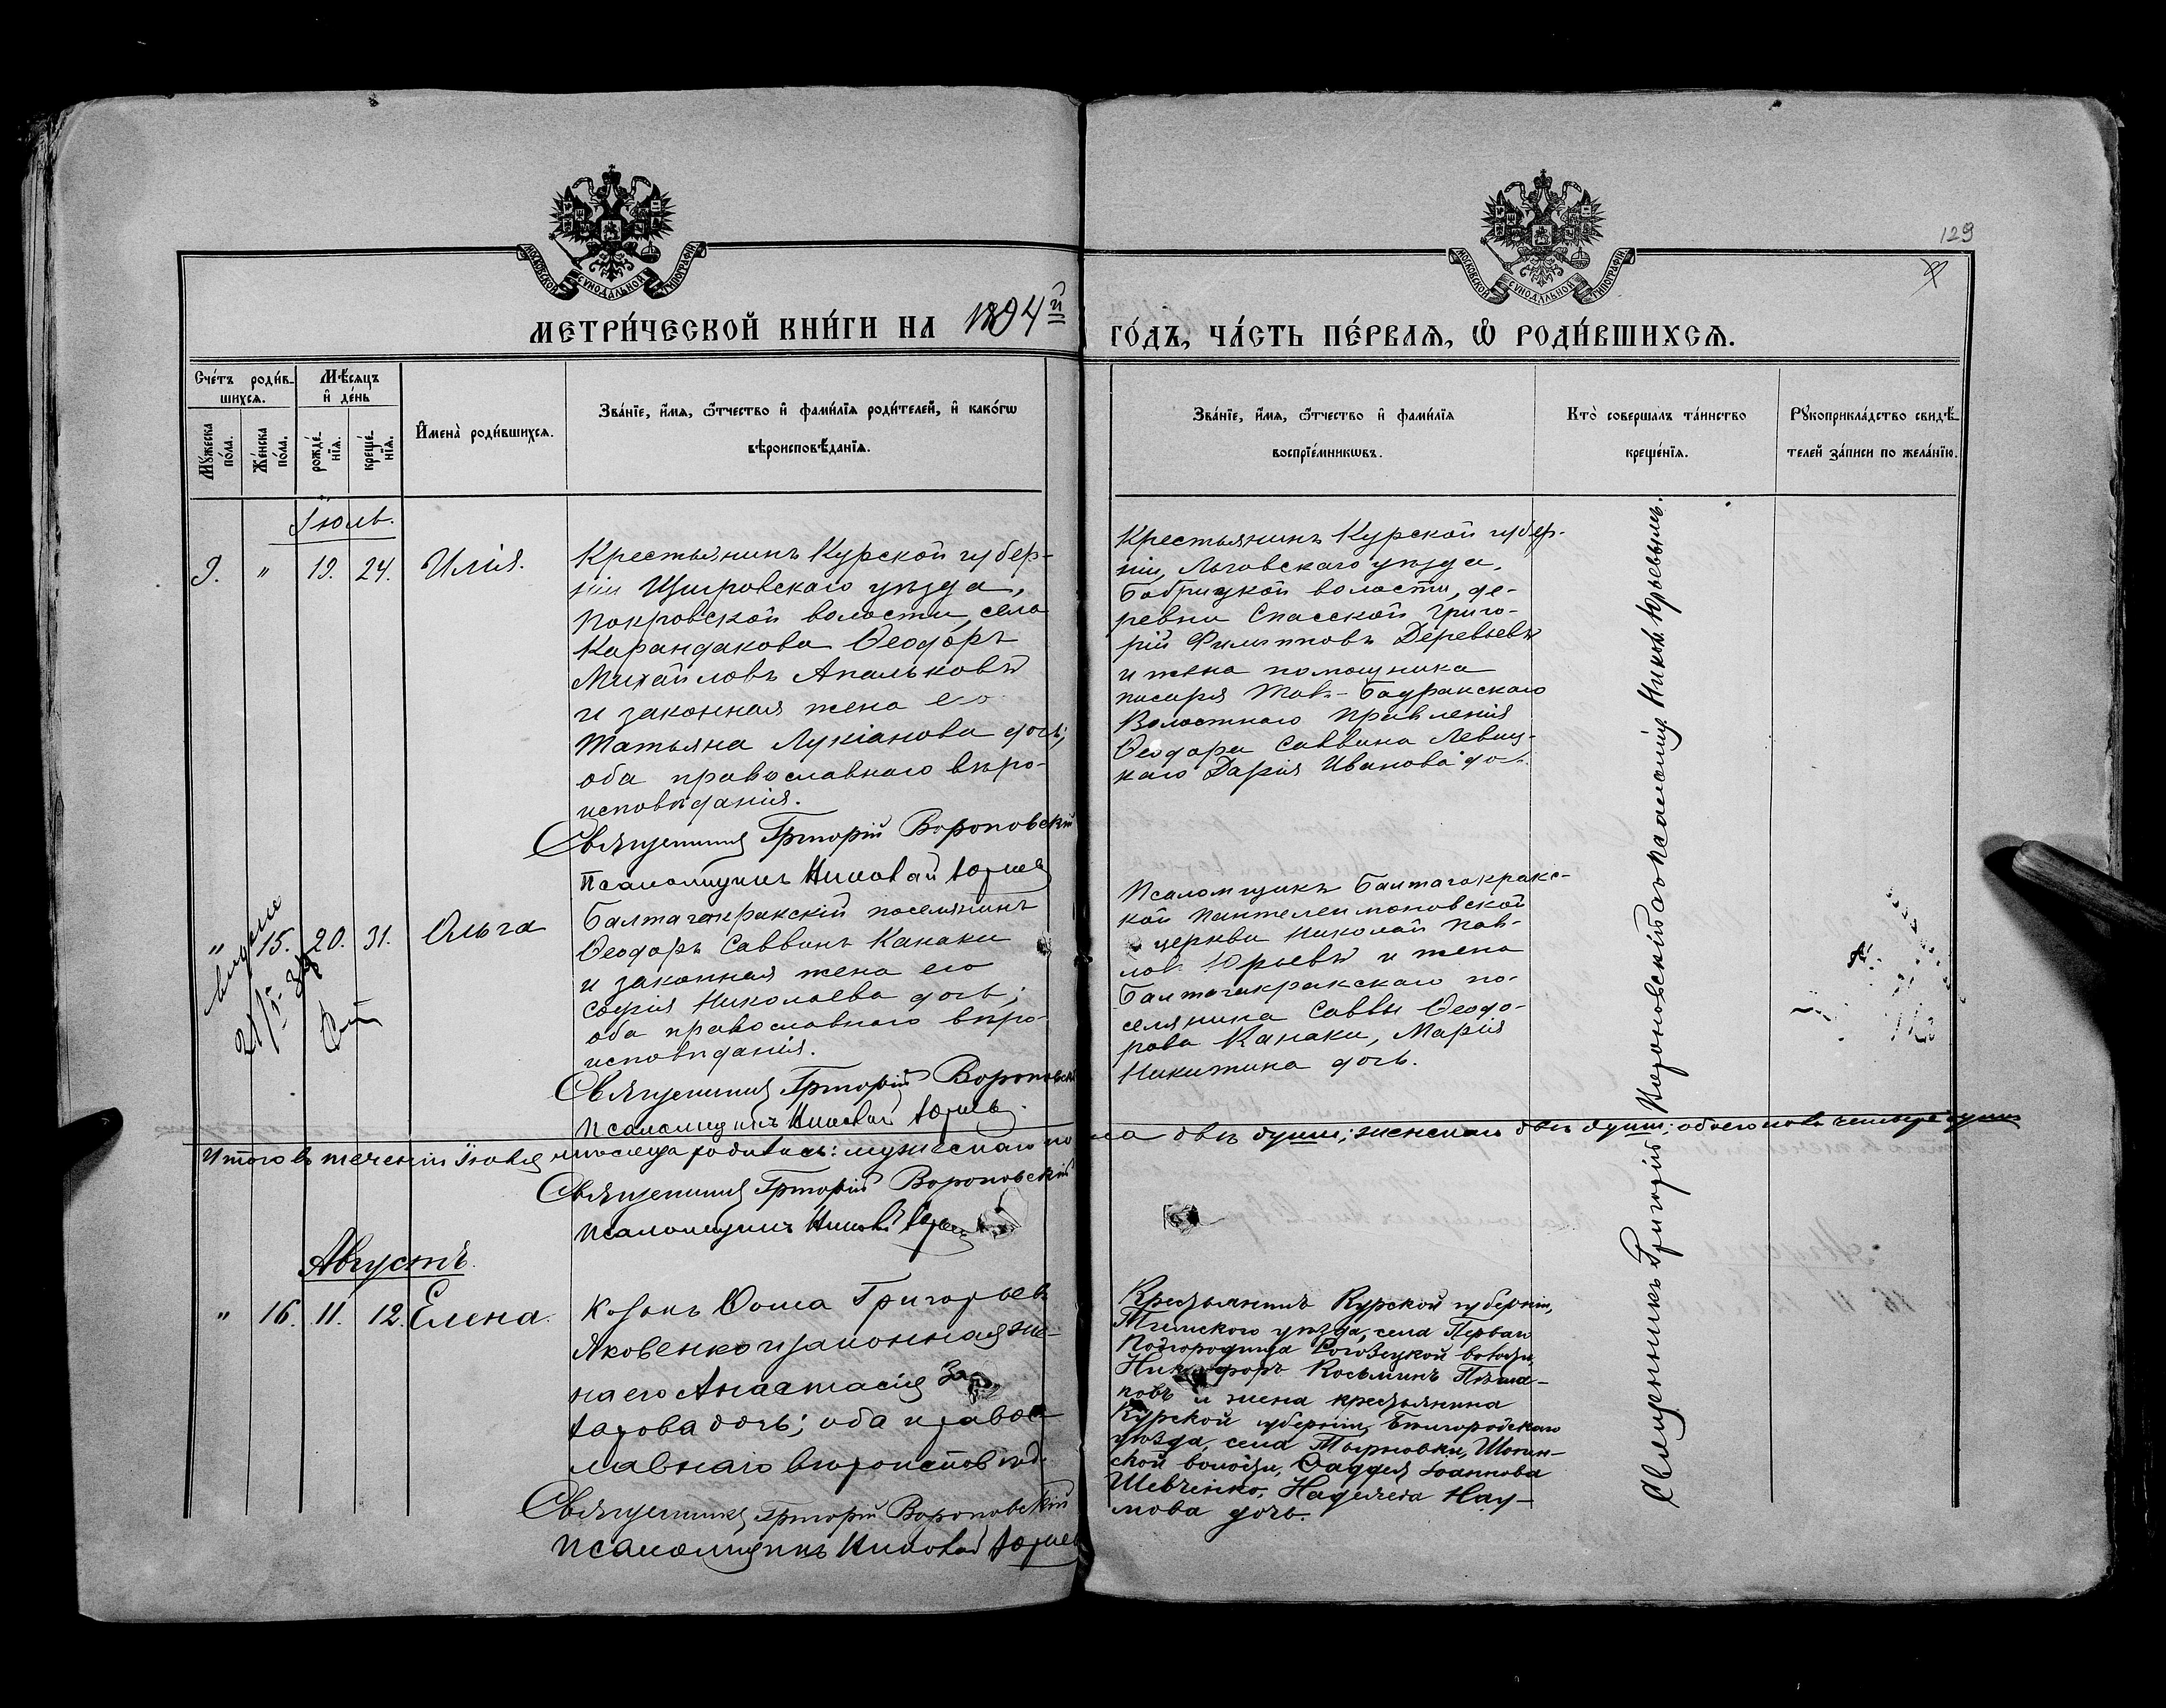 129
МОСКОВСКОЙ СѴНОДАЛЬНОЙ ТИПОГРАФІИ
МОСКОВСКОЙ СѴНОДАЛЬНОЙ ТИПОГРАФІИ
МЕТРИ́ЧЕСКОЙ КНИ́ГИ НА 1894й ГО́ДЪ, ЧА́СТЬ ПЕ́РВАѦ, Ѡ РОДИ́ВШИХСѦ.
Сче́тъ роди́в-
шихсѧ.
Му́жеска по́ла.
Же́нска по́ла.
Мѣ́сѧцъ и҆ де́нь
рожде́-
нїѧ.
креще́-
нїѧ.
И҆мена̀ роди́вшихсѧ.
Зва́нїе, и҆́мѧ, ѻ҆́тчество и҆ фами́лїѧ роди́телей, и҆ како́гѡ
вѣроисповѣ́данїѧ.
Зва́нїе, и҆́мѧ, ѻ҆́тчество и҆ фами́лїѧ
воспрїе́мникѡвъ.
Кто̀ совершалъ та́инство
креще́нїѧ.
Рꙋкоприкла́дство свидѣ́-
телей за́писи по жела́нїю.
Іюль.
9. " 19. 24. Илія.
Крестьянинъ Курской губер-
ніи Щигровскаго уѣзда,
Покровской волости, села
Карандакова Ѳеодоръ
Михайловъ Апальковъ
и законная жена его
Татьяна Лукіанова дочь;
оба православнаго вѣро-
исповѣданія.
Священникъ Григорій Вороновскій
Псаломщикъ Николай Юрьевъ
Крестьянинъ Курской губер-
ніи, Льговскаго уѣзда,
Бобрицкой волости, де-
ревни Спасской Григо-
рій Филипповъ Деревьевъ
и жена помощника
писаря Тав-Бадракскаго
Волостнаго Правленія
Ѳеодора Саввина Левиц-
каго Дарія Иванова дочь.
" 15. 20. 31. Ольга
Балтачокракскій поселянинъ
Ѳеодоръ Саввинъ Канаки
и законная жена его
Софія Николаева дочь;
оба православнаго вѣро-
исповѣданія.
Священникъ Григорій Вороновскій
Псаломщикъ Николай Юрьевъ.
Псаломщикъ Балтачокракс-
кой Пантелеимоновской
церкви Николай Пав-
лов. Юрьевъ и жена
Балтачокракскаго по-
селянина Саввы Ѳеодо-
рова Канаки, Марія
Никитина дочь.
Итого въ теченіи Іюля мѣсяца родилось: мужескаго пола двѣ души; женскаго двѣ души; обоего пола четыре души
Священникъ Григорій Вороновскій
Псаломщикъ Николай Юрьевъ
Августъ.
" 16. 11. 12. Елена.
Козакъ Ѳома Григорьевъ
Яковенко и законная же-
на его Анастасія
дочь; оба правос-
лавнаго вѣроисповѣд.
Священникъ Григорій Вороновскій
Псаломщикъ Николай Юрьевъ
Крестьянинъ Курской губерніи,
Тимскаго уѣзда, села Перваго
волости,
Никифоръ Косьминъ
и жена крестьянина
Курской губерніи, Бѣлгородскаго
уѣзда, села
волости, Ѳаддея Іоаннова
Шевченко, Надежда Нау-
мова дочь.
Священникъ Григорій Вороновскій съ псаломщ. Никол. Юрьевымъ.